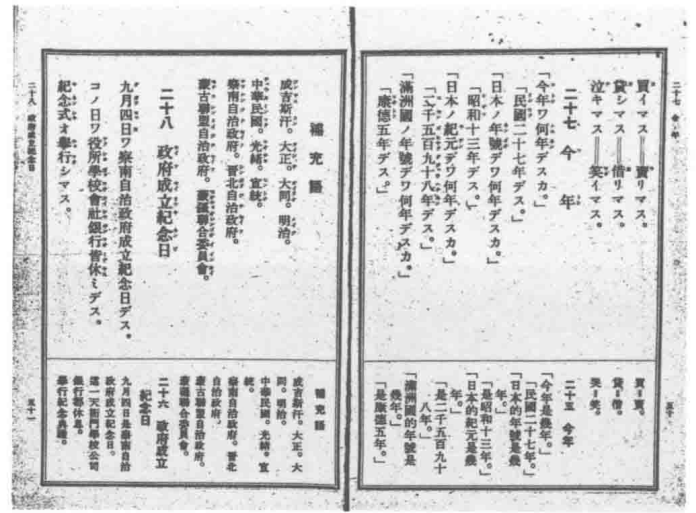 二十七 今年
買イマス＝＝賣リマス。
貸シマス＝＝借リマス。
泣キマス＝＝笑イマス。
二十七 今年
「今年ワ何年デスカ。」
「民國二十七年デス。」
「日本ノ年號デワ何年デスカ。」
「昭和十三年デス。」
「日本ノ紀元デワ何年デスカ。」
「二千五百九十八年デス。」
「滿洲國ノ年號デワ何年デスカ。」
「康德五年デス。」
買＝賣。
貸＝借。
哭＝笑。
二十五 今年
「今年是幾年。」
「民國二十七年。」
「日本的年號是幾
年。」
「是昭和十三年。」
「日本的紀元是幾
年。」
「是二千五百九十
八年。」
「滿洲國的年號是
幾年。」
「是康德五年。」
五十
補充語
成吉斯汗。大正。大同。明治。
中華民國。光緒。宣統。
察南自治政府。晉北自治政府。
蒙古聯盟自治政府。蒙疆聯合委員會。
二十八 政府成立紀念日
九月四日ワ察南自治政府成立紀念日デス。
コノ日ワ役所學校會社銀行皆休ミデス。
紀念式オ擧行シマス。
補充語
成吉斯汗。大正。大
同。明治。
中華民國。光緒。宣
統。
察南自治政府。晉北
自治政府。
蒙古聯盟自治政府。
蒙疆聯合委員會。
二十六 政府成立
紀念日
九月四日是察南自治
政府成立紀念日。
這一天衙門學校公司
銀行都休息。
擧行紀念典禮。
二十八 政府成立紀念日
五十一